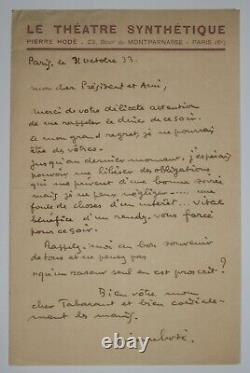 LE THÉATRE SYNTHÉTIQUE
PIERRE HODÉ - 23, Bour du MONTPARNASSE - PARIS (6e)
Paris, le 31 octobre 33.
mon cher Président et Ami,
Merci de votre délicate attention
de me rappeler le dîner de ce soir.
A mon grand regret, je ne pourrai
être des vôtres.
jusqu'au dernier moment, j'espérais
pouvoir me libérer des obligations
qui me privent d'une bonne soirée
mais je ne peux négliger ..... une
foule de choses d'un intérêt... vital
bénéfice d'un rendez-vous forcé
pour ce soir.
Rappelez-moi au bon souvenir
de tous et ne pensez pas
qu'un raseur seul en est proscrit ?
Bien vôtre mon
cher Tabarant et bien cordiale-
ment les mains.